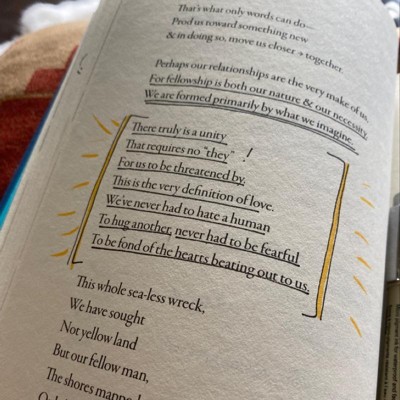 That's what only words can do—
Prod us toward something new
& in doing so, move us closer → together.
Perhaps our relationships are the very make of us,
For fellowship is both our nature & our necessity.
We are formed primarily by what we imagine.
There truly is a unity
That requires no "they" !
For us to be threatened by.
This is the very definition of love.
We've never had to hate a human
To hug another, never had to be fearful
To be fond of the hearts beating out to us.
This whole sea-less wreck,
We have sought
Not yellow land
But our fellow man,
The shores